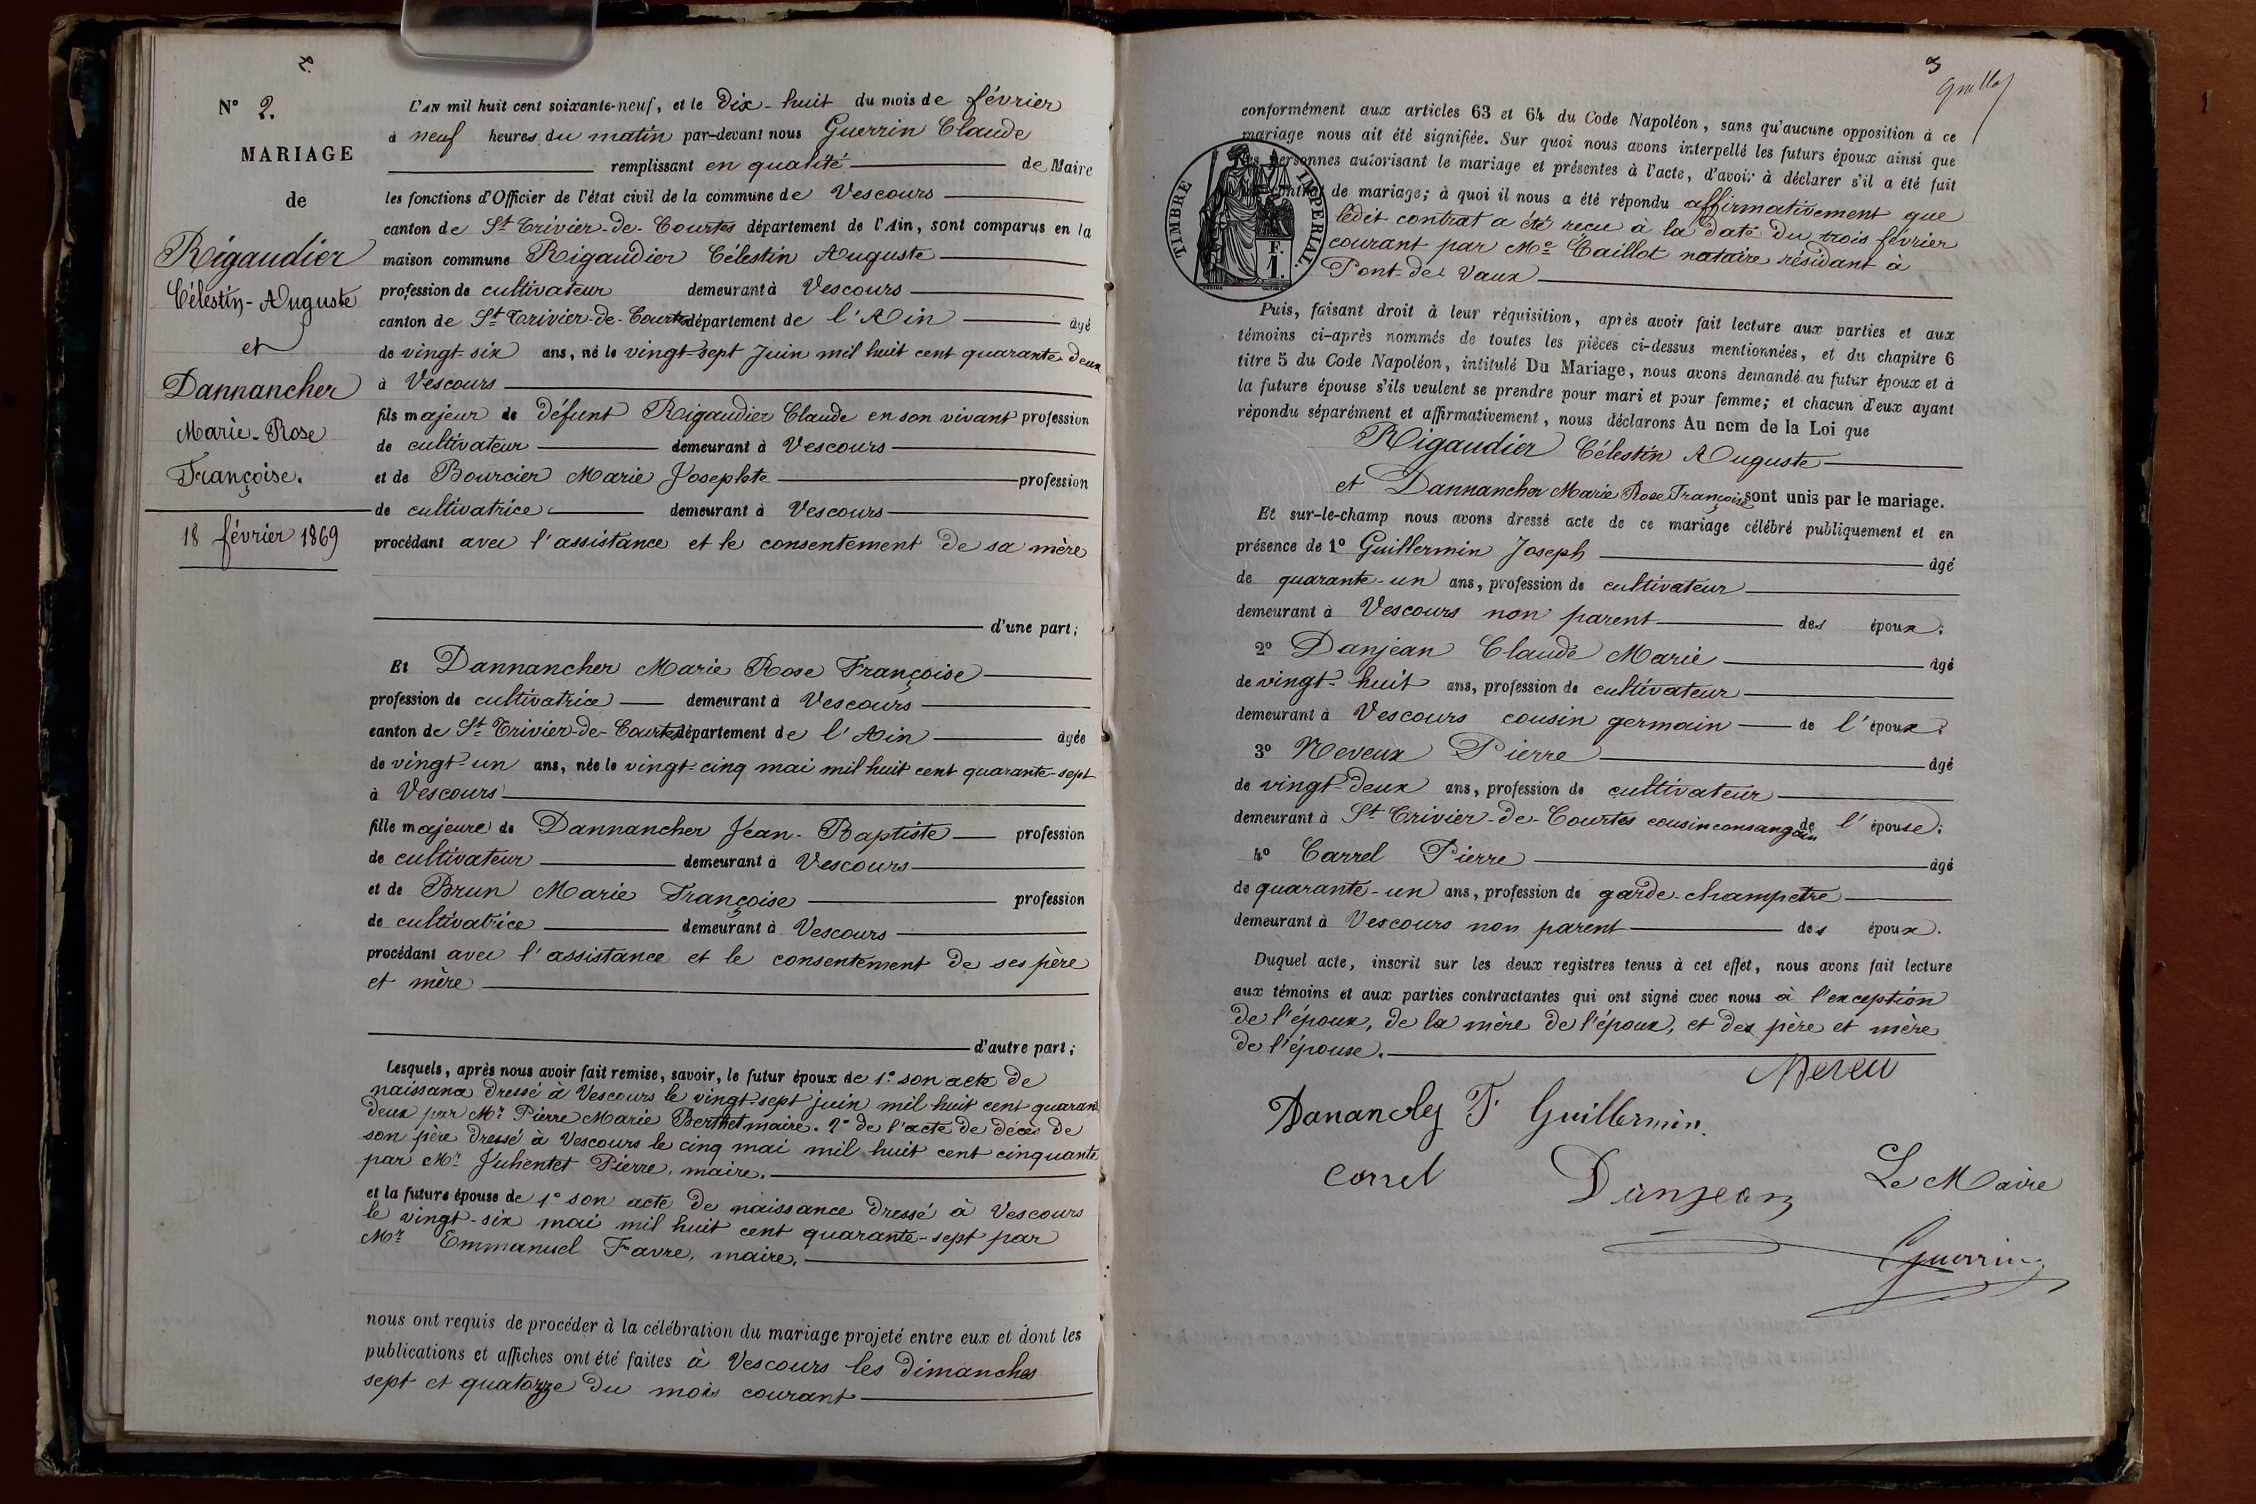 2.
N° 2.
MARIAGE
de
Rigaudier
Célestin-Auguste
et
Dannancher
Marie-Rose
Françoise.
18 février 1869
L'AN mil huit cent soixante-neuf, et le dix-huit du mois de février
à neuf heures du matin par-devant nous Guerrin Claude
remplissant en qualité de Maire
les fonctions d'Officier de l'état civil de la commune de Vescours
canton de St Trivier-de-Courtes département de l'Ain, sont comparus en la
maison commune Rigaudier Célestin Auguste
profession de cultivateur demeurant à Vescours
canton de St Trivier-de-Courtes département de l'Ain âgé
de vingt-six ans, né le vingt-sept Juin mil huit cent quarante deux
à Vescours
fils majeur de défunt Rigaudier Claude en son vivant profession
de cultivateur demeurant à Vescours
et de Bourcier Marie Josephte profession
de cultivatrice demeurant à Vescours
procédant avec l'assistance et le consentement de sa mère
d'une part;
Et Dannancher Marie Rose Françoise
profession de cultivatrice demeurant à Vescours
canton de St Trivier-de-Courtes département de l'Ain âgée
de vingt-un ans, née le vingt-cinq mai mil huit cent quarante-sept
à Vescours
fille majeure de Dannancher Jean-Baptiste profession
de cultivateur demeurant à Vescours
et de Brun Marie Françoise profession
de cultivatrice demeurant à Vescours
procédant avec l'assistance et le consentement de ses père
et mère
d'autre part;
Lesquels, après nous avoir fait remise, savoir, le futur époux de 1° son acte de
naissance dressé à Vescours le vingt-sept juin mil huit cent quarante
deux par Mr Pierre Marie Berthet maire. 2° de l'acte de décès de
son père dressé à Vescours le cinq mai mil huit cent cinquante
par Mr Juhentet Pierre, maire.
et la future épouse de 1° son acte de naissance dressé à Vescours
le vingt-six mai mil huit cent quarante-sept par
Mr Emmanuel Favre, maire.
nous ont requis de procéder à la célébration du mariage projeté entre eux et dont les
publications et affiches ont été faites à Vescours les dimanches
sept et quatorze du mois courant
3
conformément aux articles 63 et 64 du Code Napoléon, sans qu'aucune opposition à ce
mariage nous ait été signifiée. Sur quoi nous avons interpellé les futurs époux ainsi que
les personnes autorisant le mariage et présentes à l'acte, d'avoir à déclarer s'il a été fait
contrat de mariage; à quoi il nous a été répondu affirmativement que
ledit contrat a été reçu à la date du trois février
courant par Me Caillot notaire résidant à
Pont-de-Vaux
TIMBRE IMPERIAL.
F.
1.
Puis, faisant droit à leur réquisition, après avoir fait lecture aux parties et aux
témoins ci-après nommés de toutes les pièces ci-dessus mentionnées, et du chapitre 6
titre 5 du Code Napoléon, intitulé Du Mariage, nous avons demandé au futur époux et à
la future épouse s'ils veulent se prendre pour mari et pour femme; et chacun d'eux ayant
répondu séparément et affirmativement, nous déclarons Au nom de la Loi que
Rigaudier Célestin Auguste
et Dannancher Marie Rose Françoise sont unis par le mariage.
Et sur-le-champ nous avons dressé acte de ce mariage célébré publiquement et en
présence de 1° Guillermin Joseph âgé
de quarante-un ans, profession de cultivateur
demeurant à Vescours non parent des époux.
2° Danjean Claude Marie âgé
de vingt-huit ans, profession de cultivateur
demeurant à Vescours cousin germain de l'époux.
3° Neveux Pierre âgé
de vingt-deux ans, profession de cultivateur
demeurant à St Trivier-de-Courtes cousin consanguin de l'épouse.
4° Carrel Pierre âgé
de quarante-un ans, profession de garde-champetre
demeurant à Vescours non parent des époux.
Duquel acte, inscrit sur les deux registres tenus à cet effet, nous avons fait lecture
aux témoins et aux parties contractantes qui ont signé avec nous à l'exception
de l'époux, de la mère de l'époux, et des père et mère
de l'épouse.
Neveu
F. Guillermin
Correl
Danjean
Le Maire
Guerrin